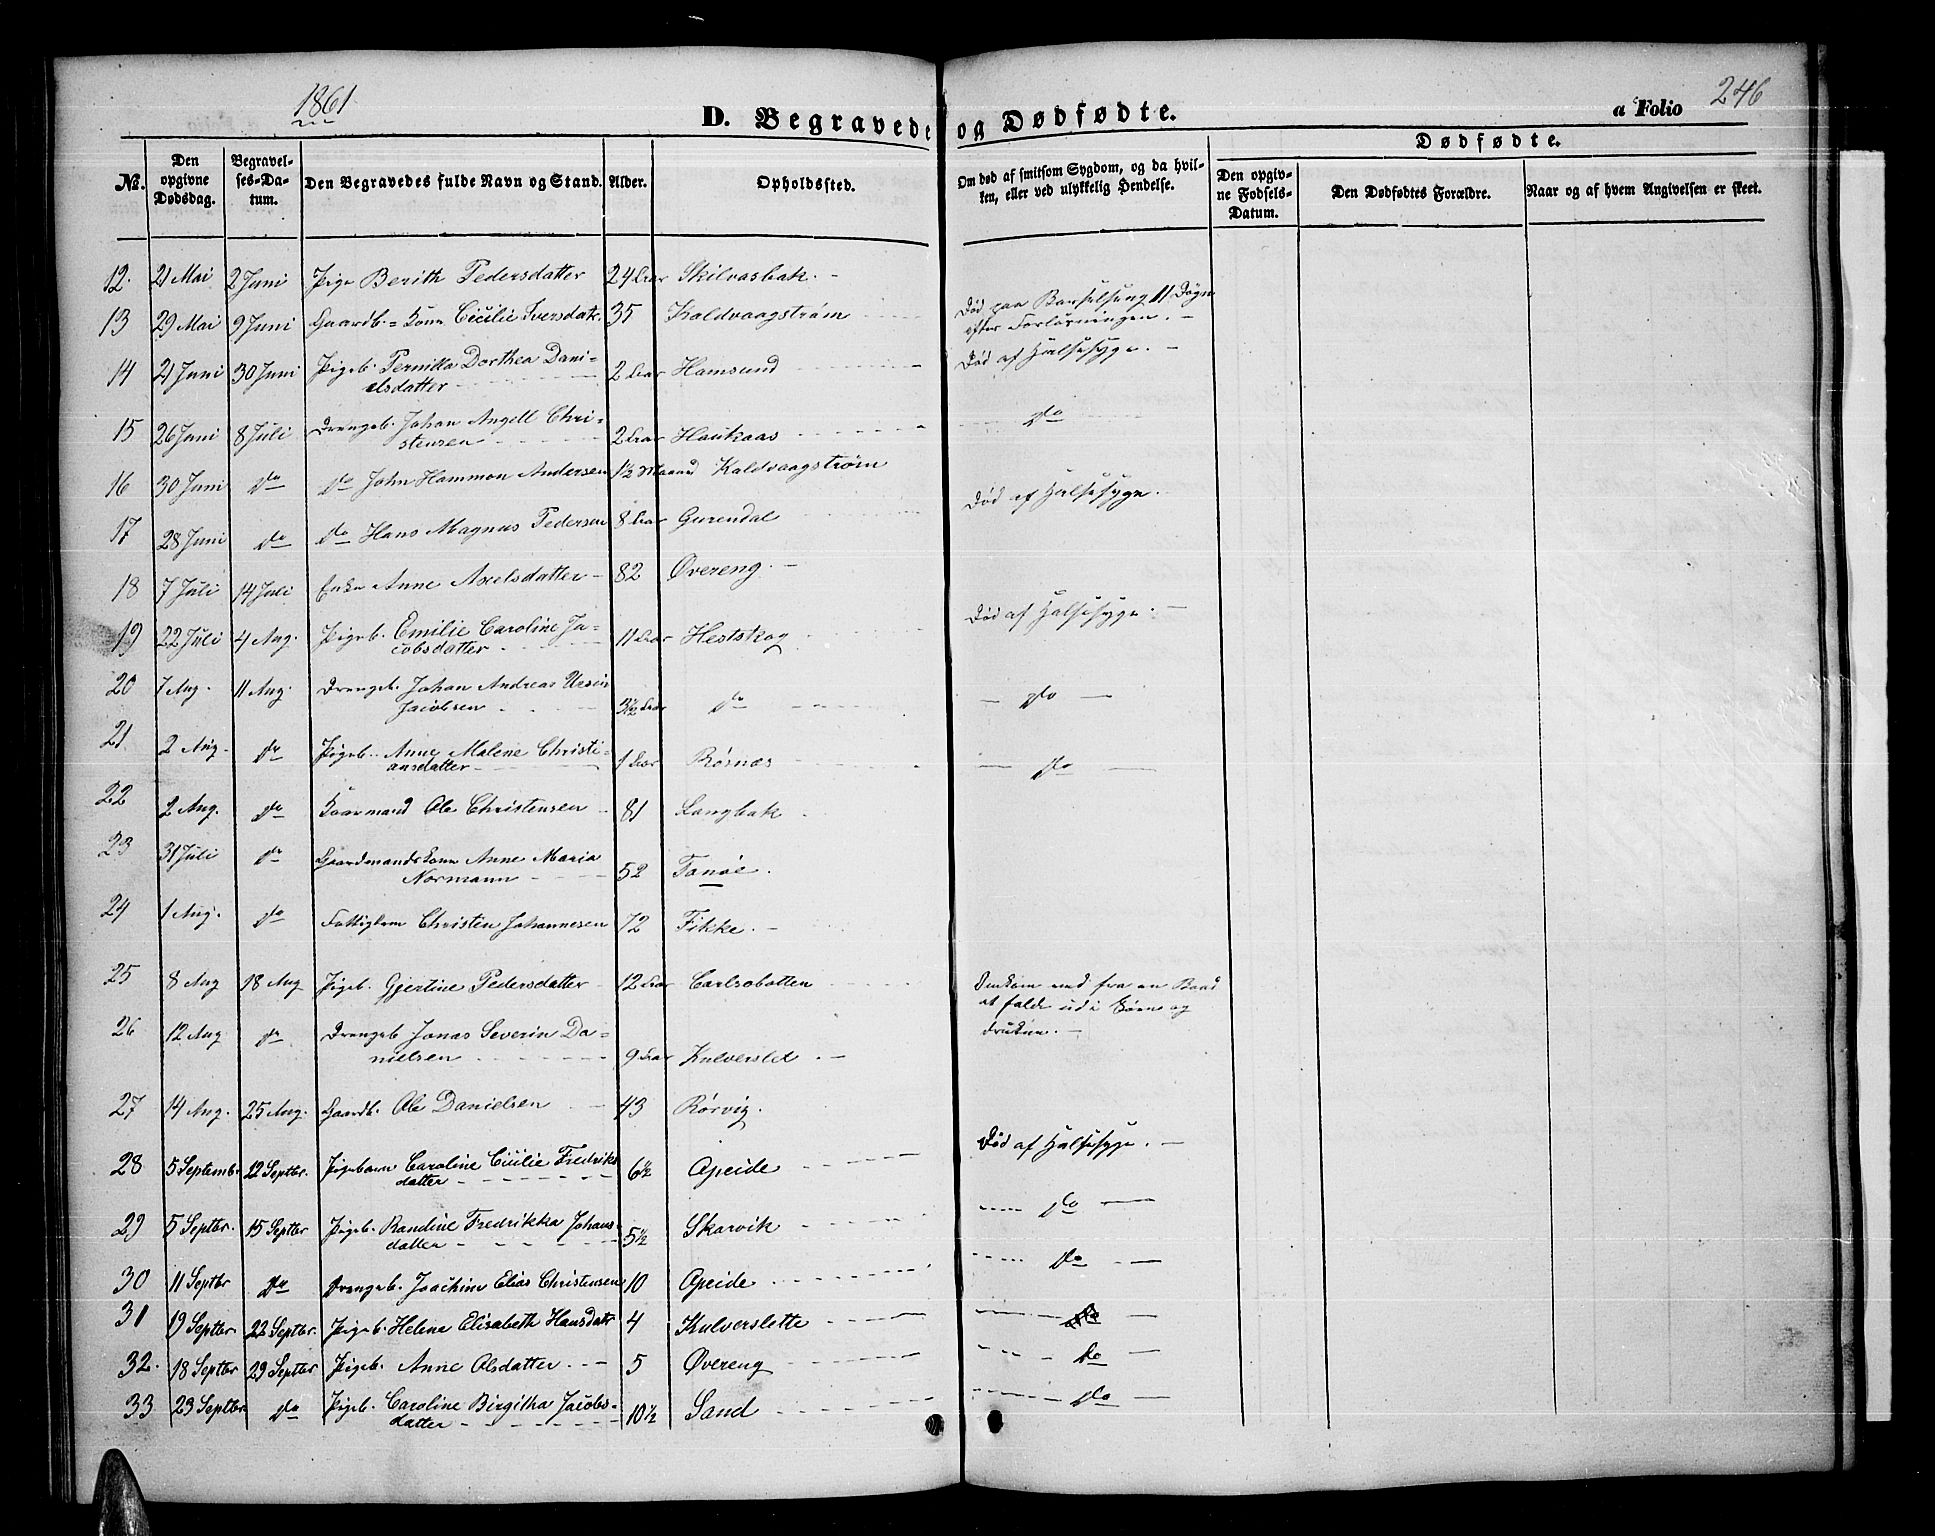 1861
D. Begravede og Dødfødte.
a Folio 246
Dødfødte.
No. | Den opgivne Dødsdag. | Begravelses-Datum. | Den Begravedes fulde Navn og Stand. | Alder. | Opholdssted. | Om død af smitsom Sygdom, og da hvilken, eller ved ulykkelig Hendelse. | Den opgivne Fødsels-Datum. | Den Dødfødtes Forældre. | Naar og af hvem Angivelsen er skeet.
12. 21 Mai 2 Juni Pige Berith Pedersdatter 24 Aar Skilvasbak. -
13 29 Mai 9 Juni Gaardb.= Kone Cicilie Iversdatr. 35 Kaldvaagstrøm Død paa Barselseng 11 Døgn
efter Forløsningen. -
14 21 Juni 30 Juni Pigeb. Pernilla Dorthea Dani-
elsdatter 2 Aar Hamsund Død af Halsesyge. -
15 26 Juni 8 Juli Drengeb. Johan Angell Chri-
stensen 2 Aar Haukaas Do
16 30 Juni Do Do John Hammon Andersen 1½ Maaned Kaldvaagstrøm
17 28 Juni Do Do Hans Magnus Pedersen 8 Aar Gurendal Død af Halsesyge.
18 7 Juli 14 Juli Enke Anne Axelsdatter 82 Øvereng. -
19 22 Juli 4 Aug. Pigeb. Emilie Caroline Ja-
cobsdatter 11 Aar Hestskog Død af Halsesyge. -
20 7 Aug. 11 Aug. Drengeb. Johan Andreas Ursin
Jacobsen 3½ Aar Do - Do -
21 2 Aug. Do Pigeb. Anne Malene Christi-
ansdatter 1 Aar Rørnæs - Do -
22 2 Aug. Do Kaarmand Ole Christensen 81 Langbak
23 31 Juli Do Gaardmandskone Anne Maria
Normann 52 Tanøe.
24 1 Aug. Do Fattiglem Christen Johannesen 72 Fikke. -
25 8 Aug 18 Aug Pigeb. Gjertine Pedersdatter 12 Aar Carlsobotten Omkom ved fra en Baad
at falde ud i Søen og
drukne. -
26 12 Aug Do Drengeb Jonas Severin Da-
nielsen 9 Aar Kulversled. -
27 14 Aug. 25 Aug. Gaardb. Ole Danielsen 43 Rørvig.
28 5 Septembr. 12 Septbr. Pigebarn Caroline Cicilie Fredriks
datter 6½ Apeide Død af Halsesyge. -
29 5 Septbr. 15 Septbr Pigeb. Randine Fredrikka Johans-
datter 5½ Skarvik Do
30 11 Septbr Do Drengeb. Joachim Elias Christensen 10 Apeide Do
31 19 Septbr. 22 Septbr. Pigeb. Helene Elisabeth Hansdatr 4 Kulverslette Do
32. 18 Septbr 29 Septbr Pigeb. Anne Olsdatter 5 Øvereng Do
33 23 Septbr. Do Pigeb. Caroline Birgitha Jacobs-
datter 10½ Sand Do